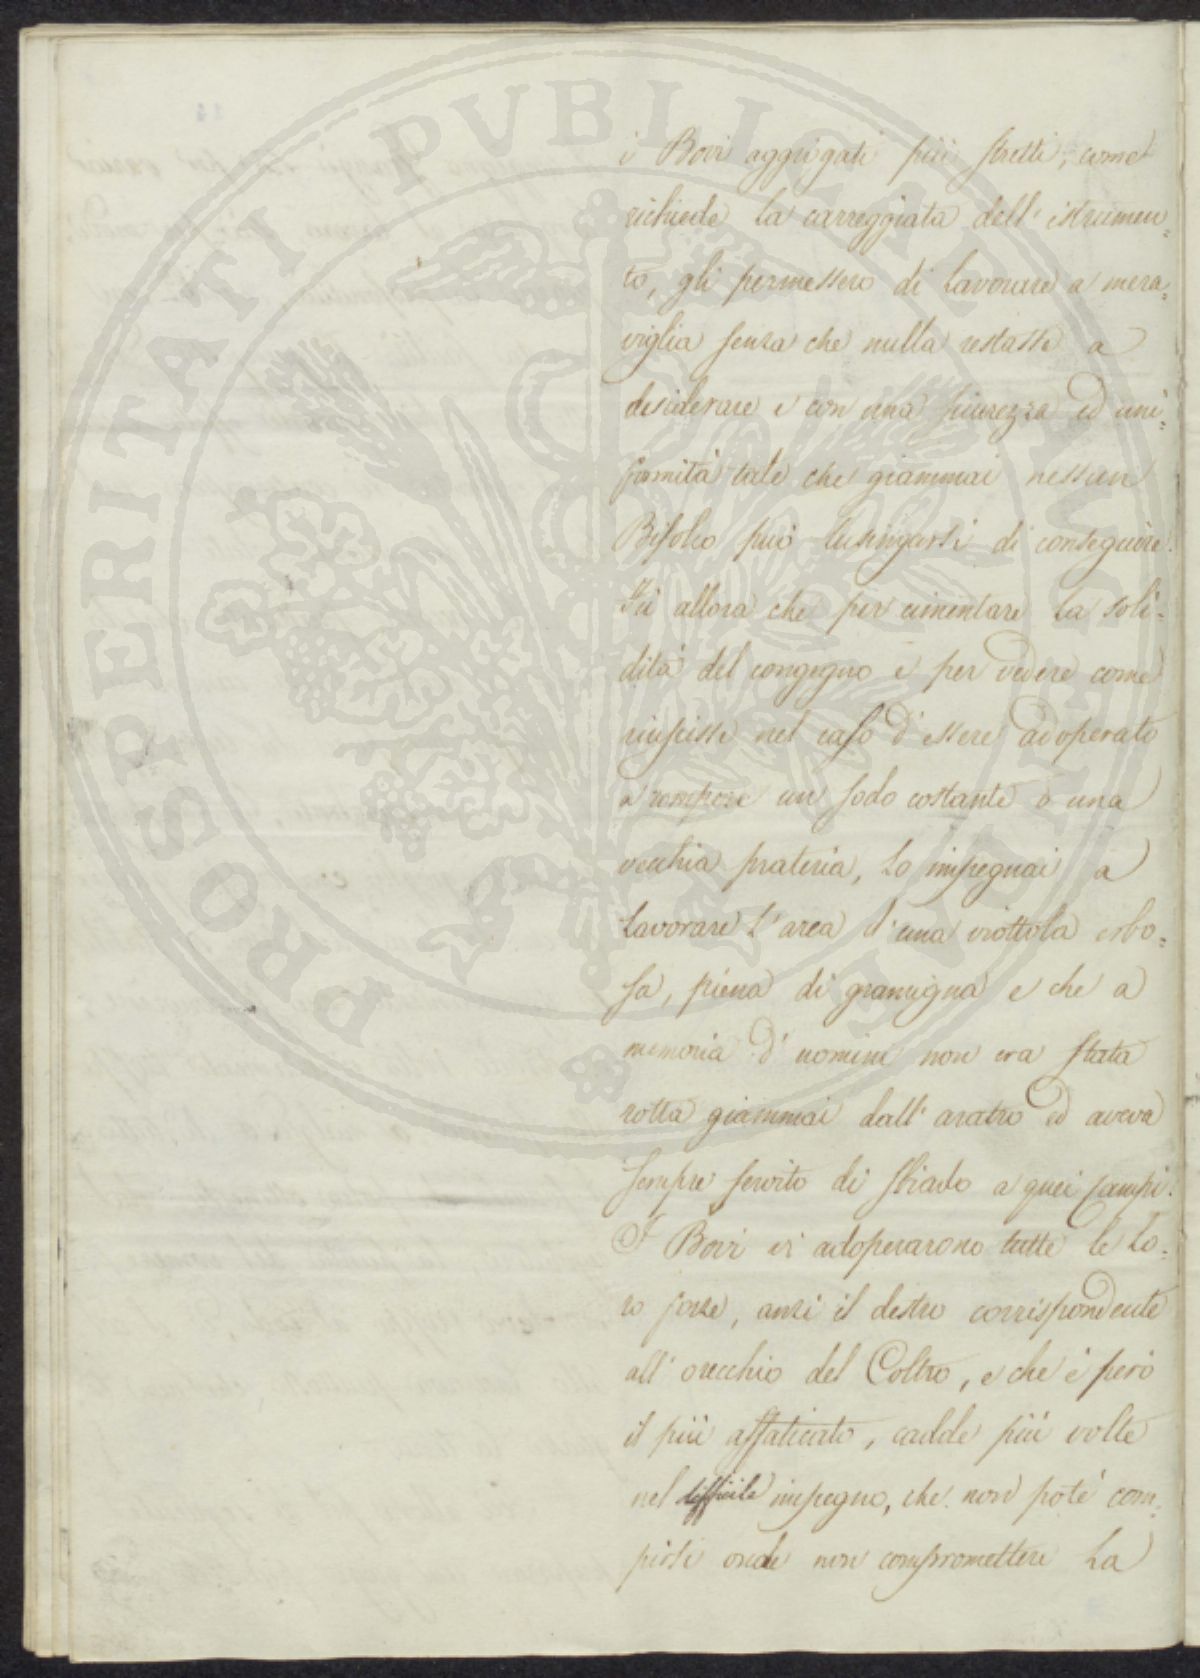 PROSPERITATI PVBLICAE AVGENDAE
i Bovi aggiogati più stretti, come
richiede la carreggiata dell'istrumen=
to, gli permessero di lavorare a mera=
viglia senza che nulla restasse a
desiderare e con una sicurezza ed uni=
formità tale che giammai nessun
Bifolco può lusingarsi di conseguire.
Fù allora che per cimentare la soli=
dità del congegno e per vedere come
riuscisse nel caso d'essere adoperato
a rompere un sodo costante o una
vecchia prateria, lo impegnai a
lavorare l'area d'una viottola erbo=
sa, piena di gramigna e che a
memoria d'uomini non era stata
rotta giammai dall'aratro ed aveva
sempre servito di stradio a quei campi.
I Bovi vi adoperarono tutte le lo=
ro forze, anzi il destro corrispondente
all'orecchio del Coltro, e che è però
il più affaticato, cadde più volte
nel difficile impegno, che non potè com=
pirsi onde non compromettere la